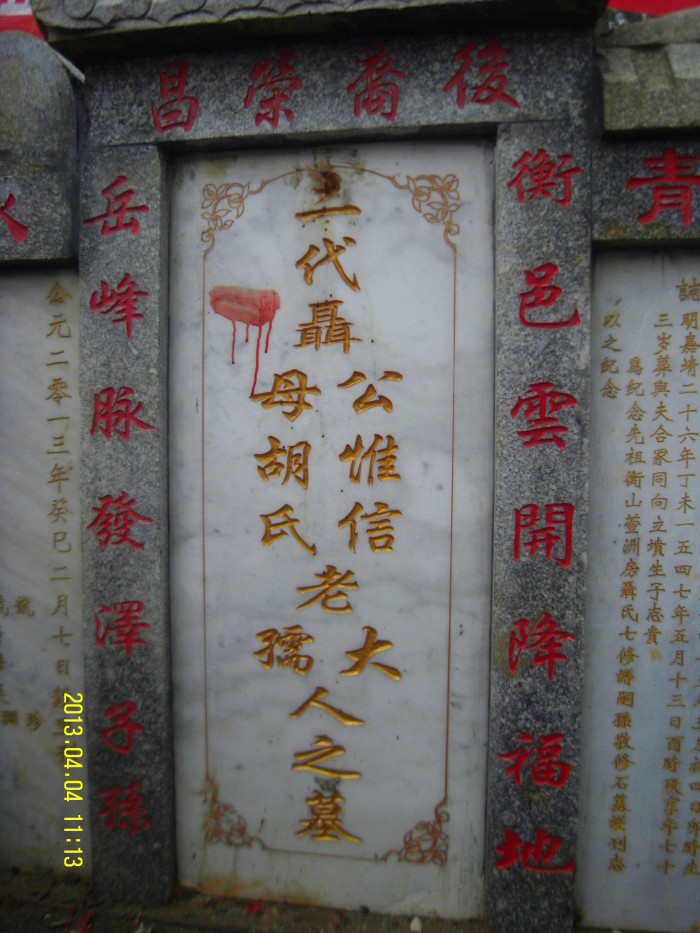 後裔榮昌
青
明嘉靖二十六年丁未一五四七年五月十三日酉時歿享年七十
三岁葬與夫合冢同向立墳生子志貴
爲紀念先祖衡山萱洲房聶氏七修譜嗣孫敬修石墓刊志
以之纪念
衡邑雲開降福地
二代聶
公惟信
母胡氏
老
大
孺
人之墓
岳峰脉發澤子孫
公元二零一三年癸巳二月七日
2013.04.04 11:13